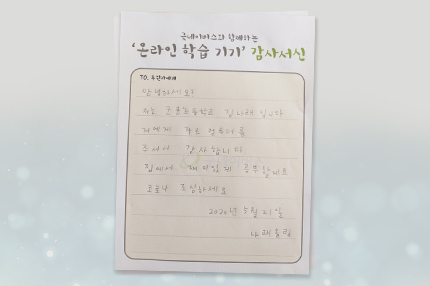 굿네이버스와 함께하는
‘온라인 학습 기기’ 감사서신
TO. 후원자에게
안녕하세요!
저는 초등학교 입니다
저에게 컴퓨터를
주셔서 감사합니다
집에서 공부할게요
코로나 조심하세요
2020년 5월 21일
올림